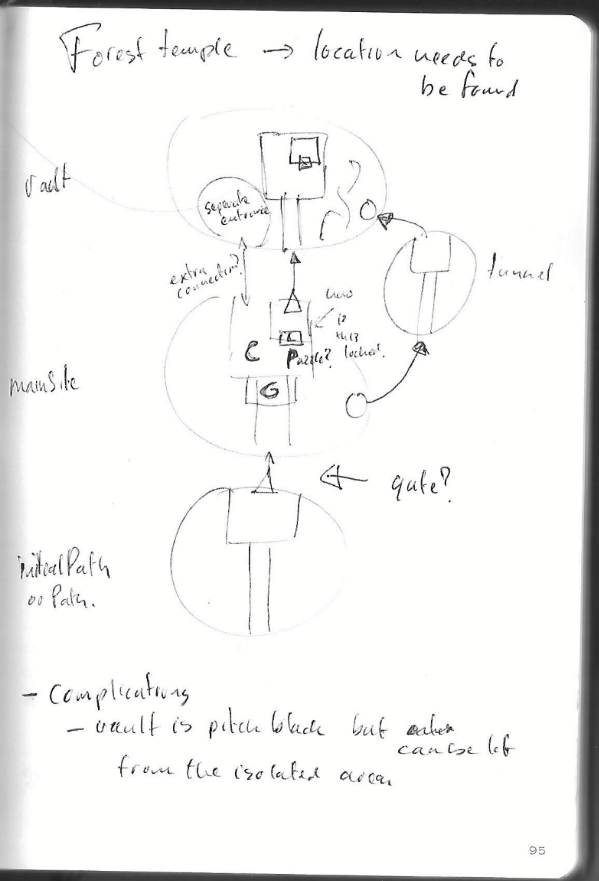 Forest temple → location needs to
be found
vault
separate
entrance
extra
connection?
tunnel
how
is
this
locked?
C
Puzzle?
G
mainsite
gate?
initial Path
oo Path.
- Complications
- vault is pitch black but
can be lit
from the isolated area
95